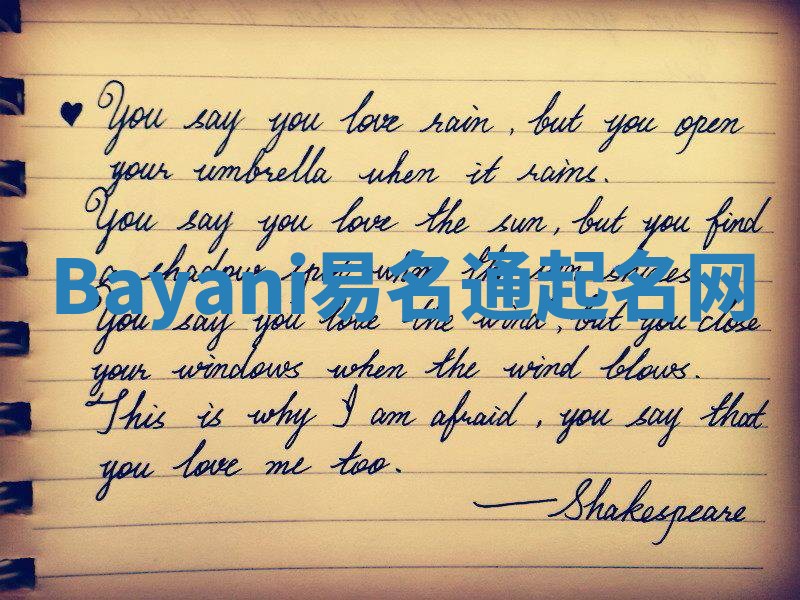 ♥ You say you love rain, but you open
your umbrella when it rains.
You say you love the sun, but you find
a shadow spot when the sun shines.
Bayani易名通起名网
You say you love the wind, but you close
your windows when the wind blows.
This is why I am afraid, you say that
you love me too.
—Shakespeare